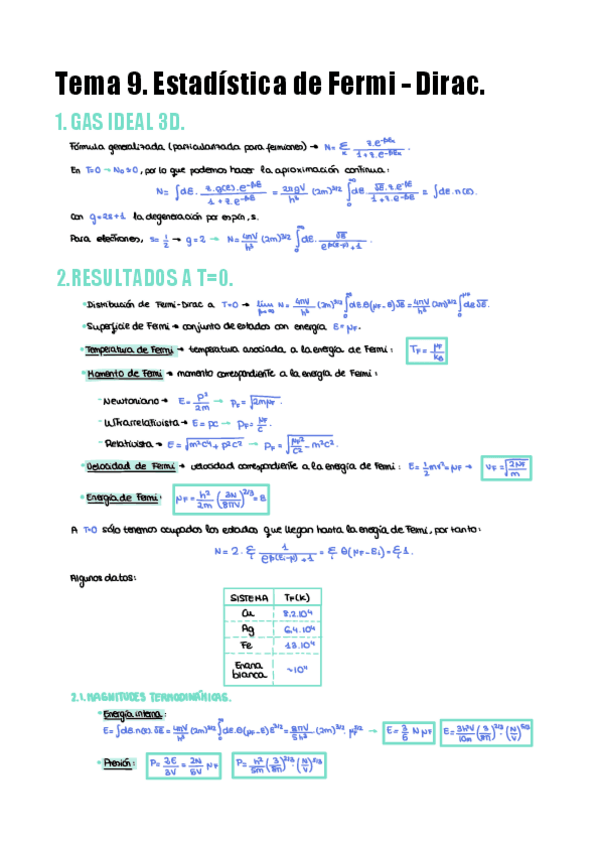 Tema 9. Estadística de Fermi - Dirac.
1. GAS IDEAL 3D.
Fórmula generalizada (particularizada para fermiones) → N= Σ_ε z.e^-βEε / 1+z.e^-βEε .
En T=0 → N₀≈0, por lo que podemos hacer la aproximación continua:
N= ∫dE. z.g(E).e^-βE / 1+z.e^-βE = 2πgV/h³ (2m)^3/2 ∫₀^∞ dE. √E.z.e^-βE / 1+z.e^-βE = ∫dE.n(E).
con g=2s+1 la degeneración por espín, s.
Para electrones, s=1/2 → g=2 → N= 4πV/h³ (2m)^3/2 ∫₀^∞ dE. √E / e^β(E-μ)+1 .
2.RESULTADOS A T=0.
• Distribución de Fermi-Dirac a T=0 → lim β→∞ N= 4πV/h³ (2m)^3/2 ∫₀^∞ dE.θ(μF-E)√E = 4πV/h³ (2m)^3/2 ∫₀^μF dE √E.
• Superficie de Fermi → conjunto de estados con energía E=μF.
• Temperatura de Fermi → temperatura asociada a la energía de Fermi: TF= μF/kB
• Momento de Fermi → momento correspondiente a la energía de Fermi:
- Newtoniano → E= p²/2m → pF=√2mμF .
- Ultrarrelativista → E=pc → pF= μF/c .
- Relativista → E=√m²c⁴+p²c² → pF=√μF²/c² - m²c² .
• Velocidad de Fermi → velocidad correspondiente a la energía de Fermi: E= 1/2 mv²=μF → vF=√2μF/m
• Energía de Fermi: μF= h²/2m (3N/8πV)^2/3 = B
A T=0 sólo tenemos ocupados los estados que llegan hasta la energía de Fermi, por tanto:
N= 2. Σ_i 1 / e^β(Ei-μ)+1 = Σ_i θ(μF-Ei)= Σ_i 1.
Algunos datos:
SISTEMA TF(K)
Cu 8,2.10⁴
Ag 6,4.10⁴
Fe 13.10⁴
Enana blanca ~10⁹
2.1. MAGNITUDES TERMODINÁMICAS.
• Energía interna:
E=∫dE.n(E).√E = 4πV/h³ (2m)^3/2 ∫₀^∞ dE.θ(μF-E)E^3/2 = 8πV/5h³ (2m)^3/2. μF^5/2 → E= 3/5 N μF E= 3h²V/10m (3/8π)^2/3.(N/V)^5/3
• Presión: P= ∂E/∂V = 2N/5V μF P= h²/5m (3/8π)^2/3.(N/V)^5/3